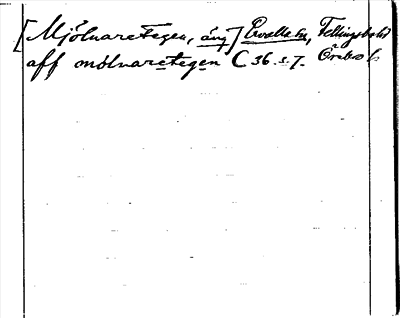 [Mjölnaretegen, äng] Ervalla sn, Fellingsbro hd
aff mölnaretegen C 36 s. 7. Örebro l.